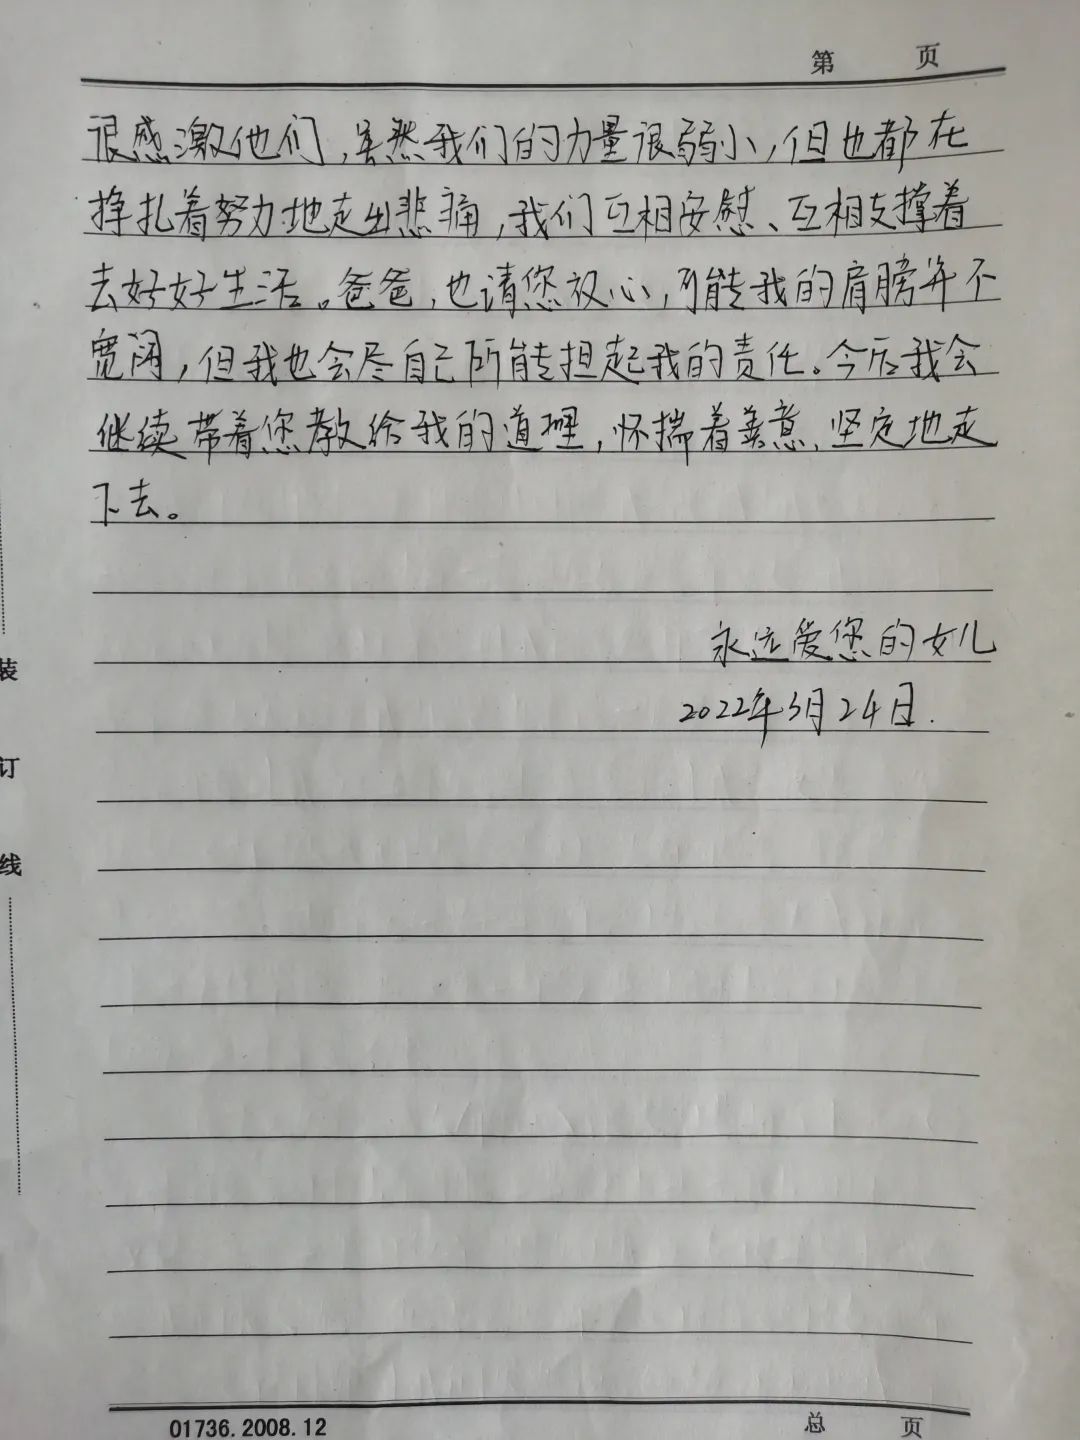 第 页
很感激他们，虽然我们的力量很弱小，但也都在
挣扎着努力地走出悲痛，我们互相安慰、互相支撑着
去好好生活。爸爸，也请您放心，可能我的肩膀并不
宽阔，但我也会尽自己所能担起我的责任。今后我会
继续带着您教给我的道理，怀揣着善意，坚定地走
下去。
永远爱您的女儿
2022年3月24日.
装
订
线
01736.2008.12
总 页